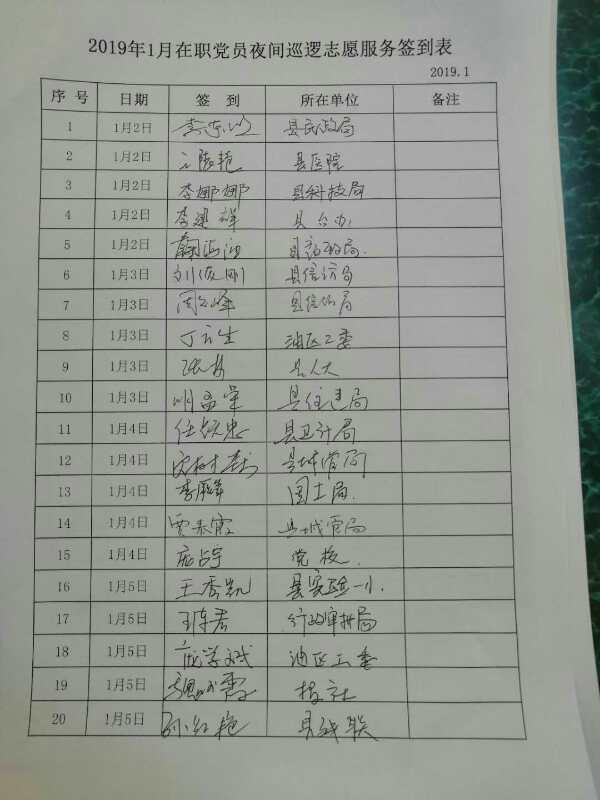 2019年1月在职党员夜间巡逻志愿服务签到表
2019.1
序号 日期 签到 所在单位 备注
1 1月2日 县民政局
2 1月2日 县医院
3 1月2日 李娜娜 县科技局
4 1月2日 李建祥 县台办
5 1月2日
6 1月3日 县信访局
7 1月3日 县信访局
8 1月3日 丁立生 油区工委
9 1月3日 县人大
10 1月3日 县住建局
11 1月4日 县卫计局
12 1月4日 县城管局
13 1月4日 国土局.
14 1月4日 贾春霞 县城管局
15 1月4日 庞占宇 党校.
16 1月5日 王秀凯 县实验一小.
17 1月5日 行政审批局
18 1月5日 庞学斌 油区工委
19 1月5日
20 1月5日 孙红艳 县残联